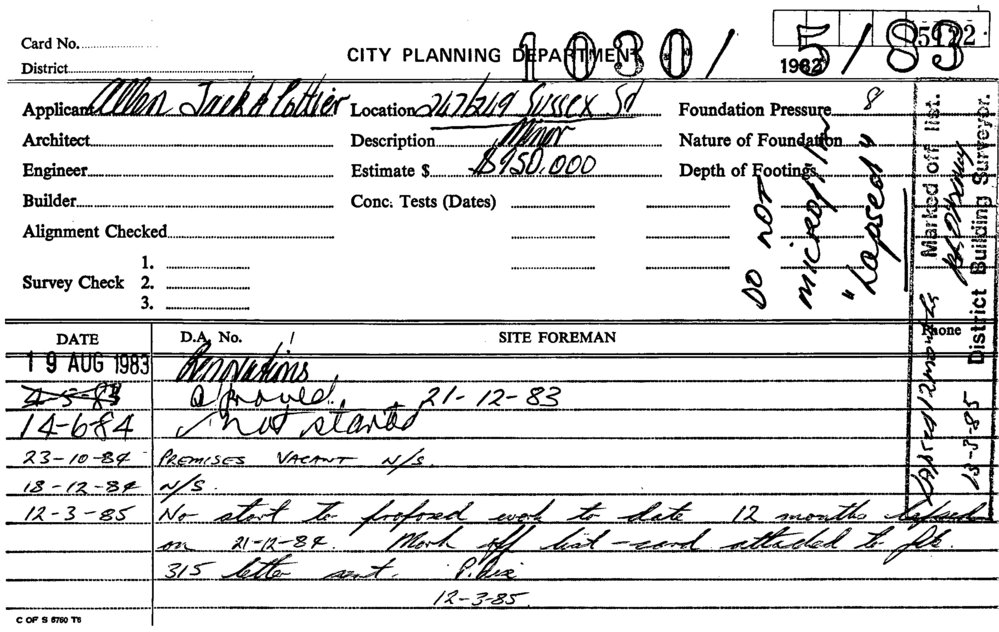 Card No.
5122
CITY PLANNING DEPARTMENT
1030/5/83
1982
District
Applicant Allen Jack & Cottier
Location 247/249 Sussex St
Foundation Pressure 8
Architect
Description Minor
Nature of Foundation
Engineer
Estimate $ $950,000
Depth of Footings
Builder
Conc. Tests (Dates)
Alignment Checked
Survey Check
1.
2.
3.
DO NOT
microfilm
"Lapsed"
Marked off list.
District Building Surveyor.
Lapsed 12 months
13-3-85
DATE
D.A. No.
SITE FOREMAN
Phone
19 AUG 1983
Renovations
approved 21-12-83
14-6-84 not started
23-10-84 PREMISES VACANT N/S.
18-12-84 N/S.
12-3-85 No start to proposed work to date 12 months lapsed
on 21-12-84. Mark off list - card attached to file
315 letter sent.
12-3-85.
C OF S 6760 T6